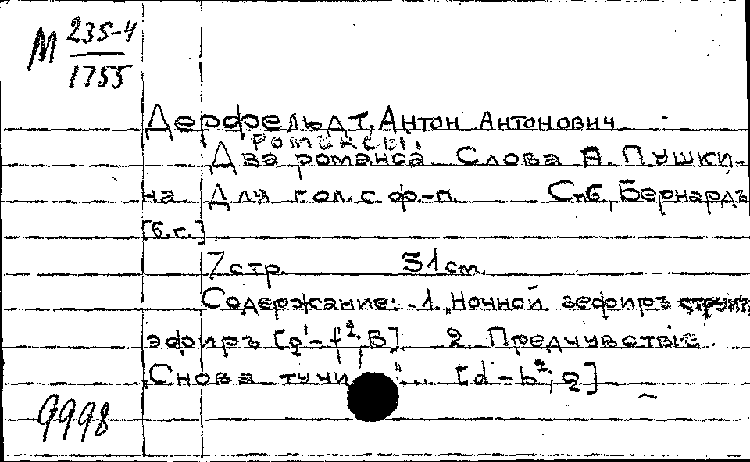 М 235-4
1755
Дерфельдт, Антон Антонович
Романсы.
Два романса. Слова А. Пушки-
на Для гол. с ф.-п. Спб., Бернардъ
[б.г.]
7 стр. 31 см.
Содержание: 1. Ночной зефиръ струитъ
эфиръ [g'-f², B]. 2. Предчувствіе.
Снова тучи ... [d'-b², g]
9998